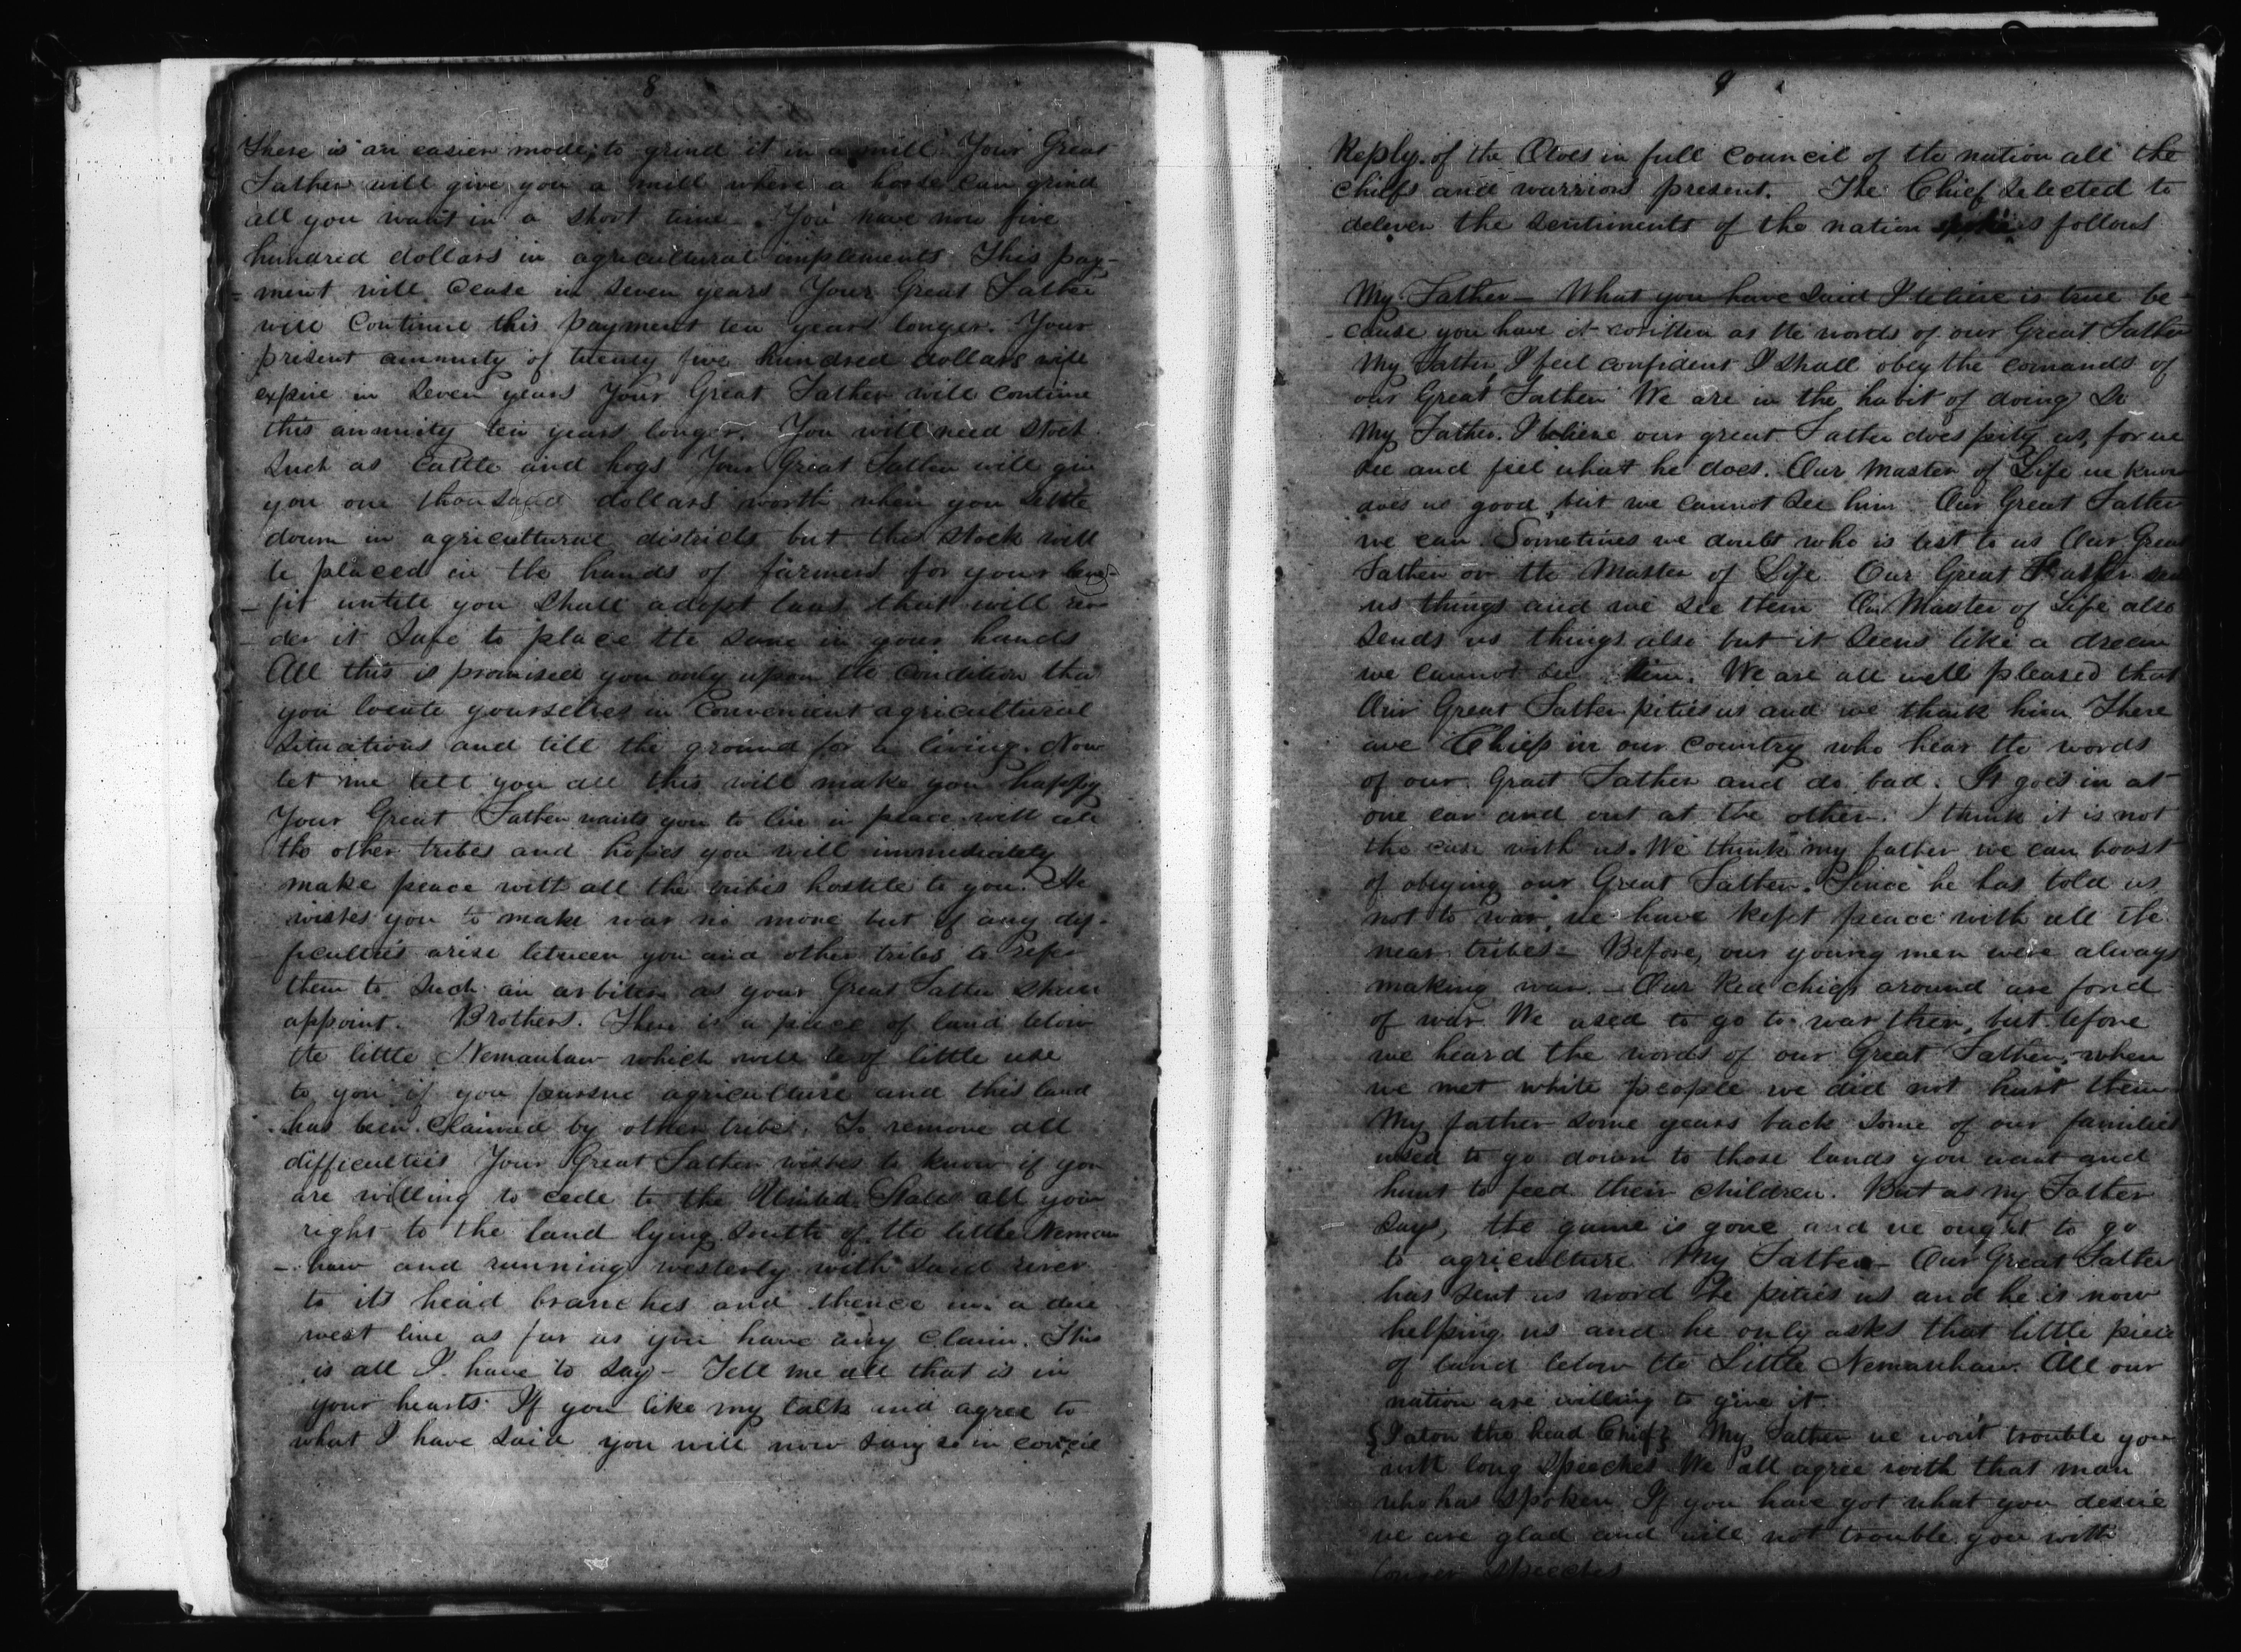 8
There is an easier mode, to grind it in a mill. Your Great
Father will give you a mill where a horse can grind
all you want in a short time. You have now five
hundred dollars in agricultural implements This pay-
-ment will cease in seven years Your Great Father
will continue this payment ten years longer. Your
present annuity of twenty five hundred dollars will
expire in seven years Your Great Father will continue
this annuity ten years longer. You will need stock
such as cattle and hogs Your Great Father will give
you one thousand dollars worth when you settle
down in agricultural districts but this stock will
be placed in the hands of farmers for your bene-
-fit untill you shall adopt laws that will ren-
-der it safe to place the same in your hands
All this is promised you only upon the condition that
you locate yourselves in convenient agricultural
situations and till the ground for a living. Now
let me tell you all this will make you happy
Your Great Father wants you to live in peace with all
the other tribes and hopes you will immediately
make peace with all the tribes hostile to you. He
wishes you to make war no more but if any dif-
ficulties arise between you and other tribes to refer
them to such an arbiter as your Great Father shall
appoint. Brothers. There is a piece of land below
the little Nemauhaw which will be of little use
to you if you pursue agriculture and this land
has been claimed by other tribes. To remove all
difficulties Your Great Father wishes to know if you
are willing to cede to the United States all your
right to the land lying south of the little Nemau
-haw and running westerly with said river
to its head branches and thence in a due
west line as far as you have any claim. This
is all I have to say - Tell me all that is in
your hearts If you like my talk and agree to
what I have said you will now say so in council
9
Reply of the Otoes in full council of the nation all the
chiefs and warriors present. The Chief selected to
deliver the sentiments of the nation spoke as follows
My Father - What you have said I believe is true be-
-cause you have it written as the words of our Great Father
My Father, I feel confident I shall obey the comands of
our Great Father We are in the habit of doing so
My Father. I believe our great Father does pity us, for we
see and feel what he does. Our Master of Life we know
does us good, but we cannot see him Our Great Father
we can. Sometimes we doubt who is best to us Our Great
Father or the Master of Life Our Great Father sends
us things and we see them Our Master of Life also
sends us things also but it seems like a dream
we cannot see him. We are all well pleased that
Our Great Father pities us and we thank him There
are Chiefs in our country who hear the words
of our Great Father and do bad. It goes in at
one ear and out at the other. I think it is not
the case with us. We think my father we can boast
of obeying our Great Father. Since he has told us
not to war, we have kept peace with all the
near tribes - Before, our young men were always
making war. - Our Red chiefs around are fond
of war We used to go to war then, but before
we heard the words of our Great Father, when
we met white people we did not hurt them
My father some years back some of our families
used to go down to those lands you want and
hunt to feed their children. But as my Father
says, the game is gone and we ought to go
to agriculture My Father - Our Great Father
has sent us word he pities us and he is now
helping us and he only asks that little piece
of land below the Little Nemauhaw. All our
nation are willing to give it
{Iatan the head Chief} My Father we wont trouble you
with long speeches We all agree with that man
who has spoken If you have got what you desire
we are glad and will not trouble you with
longer speeches